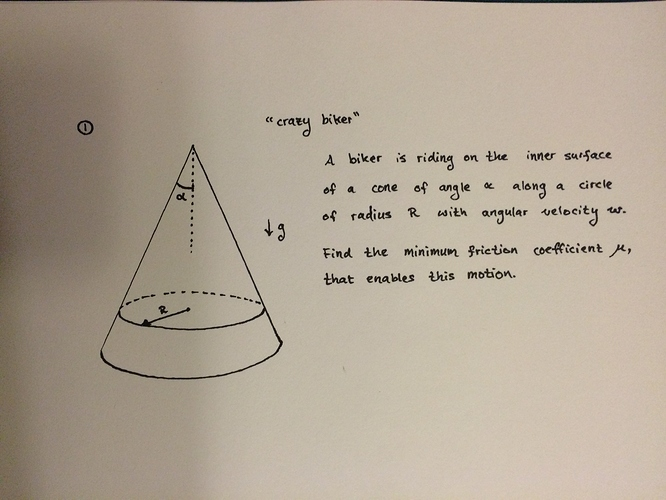 ①
"crazy biker"
A biker is riding on the inner surface
of a cone of angle α along a circle
of radius R with angular velocity w.
Find the minimum friction coefficient μ,
that enables this motion.
α
↓ g
R